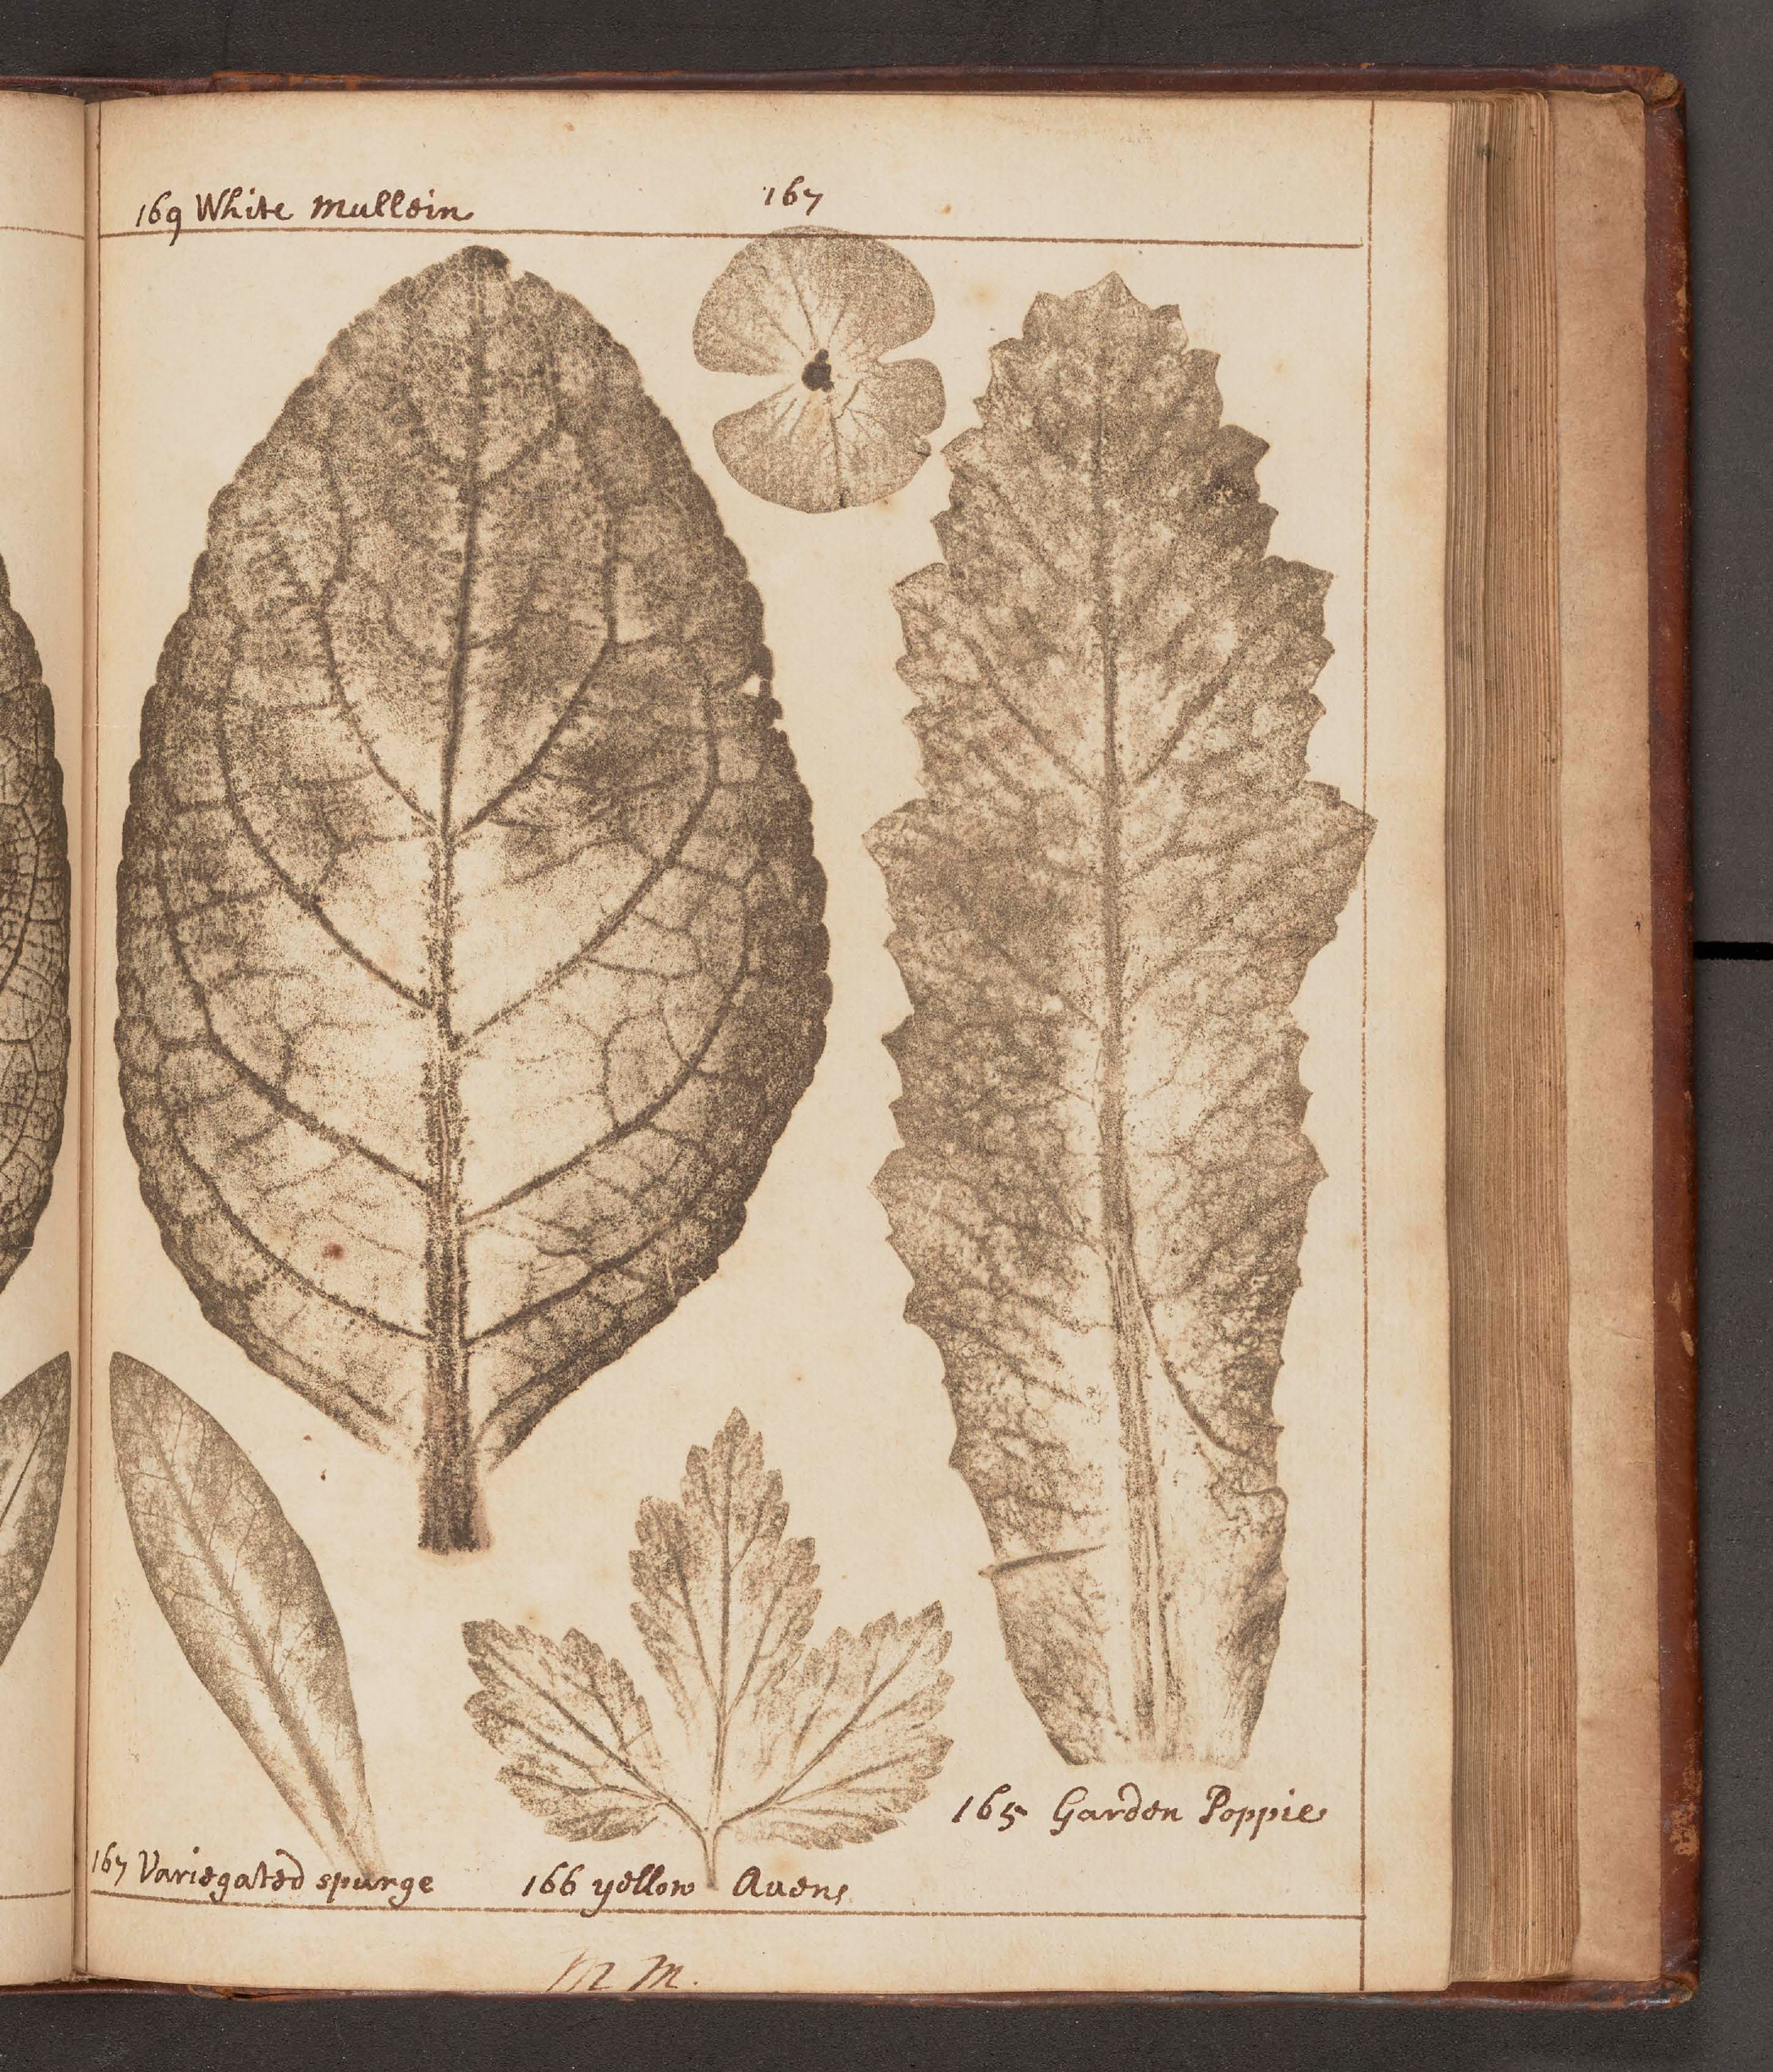 169 White mullein
167
165 Garden Poppie
167 Variegated spurge
166 yellow Auens
M M.